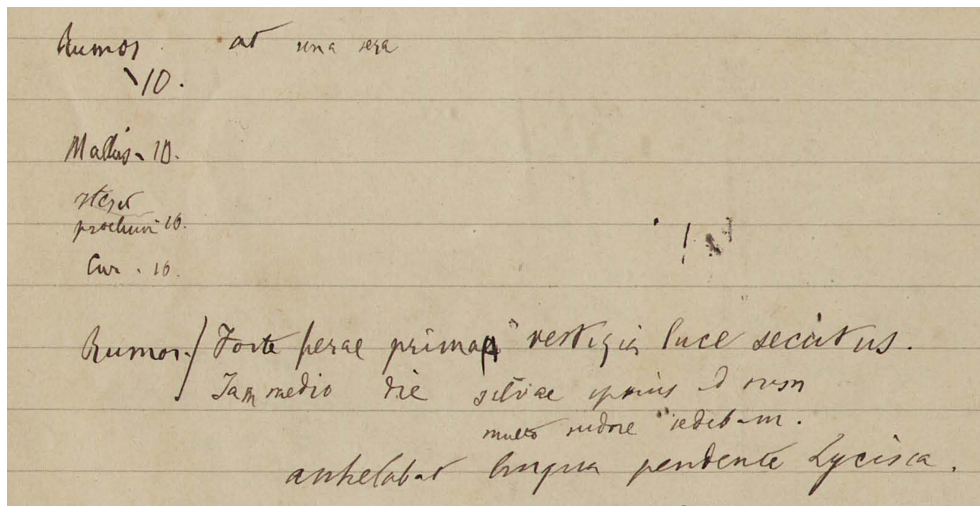 Rumor at una sera
10.
Mallius 10.
steret
proelium 10.
Cur. 10.
Rumor. Forte ferae prima vestigia luce secutus.
Jam medio die silvae ipsius
multo sudore redibam.
anhelabat lingua pendente Lycisca.